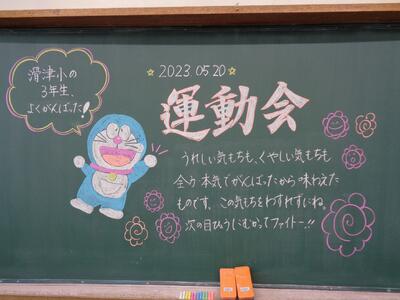 滑津小の
3年生、
よくがんばった!
☆2023.05.20☆
運動会
うれしい気もちも、くやしい気もちも
全力 本気でがんばったから味わえた
ものです。この気もちをわすれずにね。
次の目ひょうにむかってファイトー!!